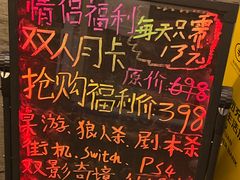 情侣福利
每天只需
双人月卡 13元
抢购福利价398
原价698
桌游、狼人杀、剧本杀
街机、Switch、PS4
双影奇境